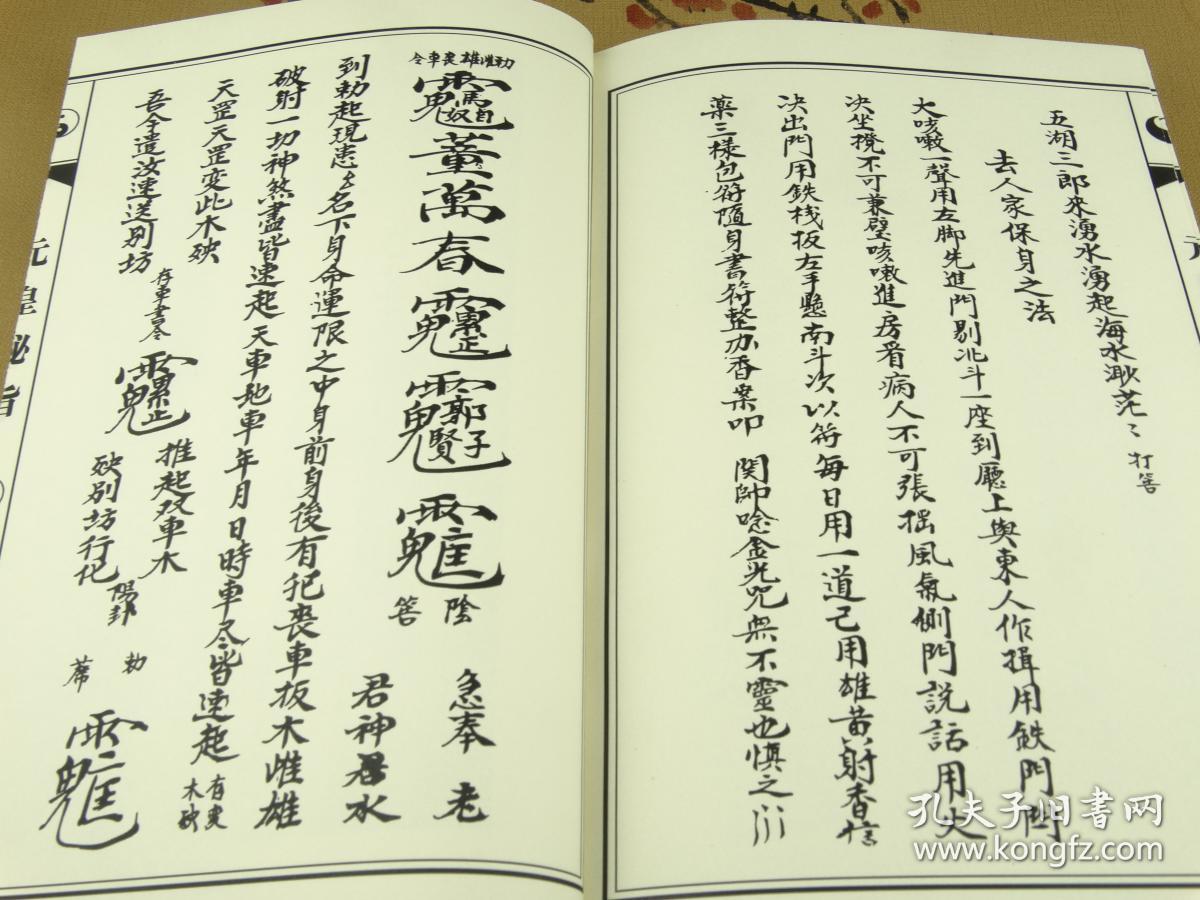 五湖三郎來湧水湧起海水渺茫〻打筶
去人家保身之法
大咳嗽一聲用左脚先進門剔北斗一座到廳上與東人作揖用鉄門閂
决坐攪不可兼壁咳嗽進房看病人不可張揺風氣側門説話用火
决出門用鉄栈扳左手懸南斗次以符每日用一道己用雄黄射香信
薬三樣包符隨身書符整办香案叩 関帥唸金光咒無不靈也慎之
董萬春
陰筶
急奉老
君神水
到勅起現患名下身命運限之中身前身後有犯喪車扳木雌雄
破射一切神煞盡皆速起天車地車年月日時車尽皆速起
天罡天罡变此木殃
吾今遣汝速送别坊
存車書令
推起双車木
殃别坊行化
陽卦
勅
元皇秘旨
孔夫子旧书网
www.kongfz.com